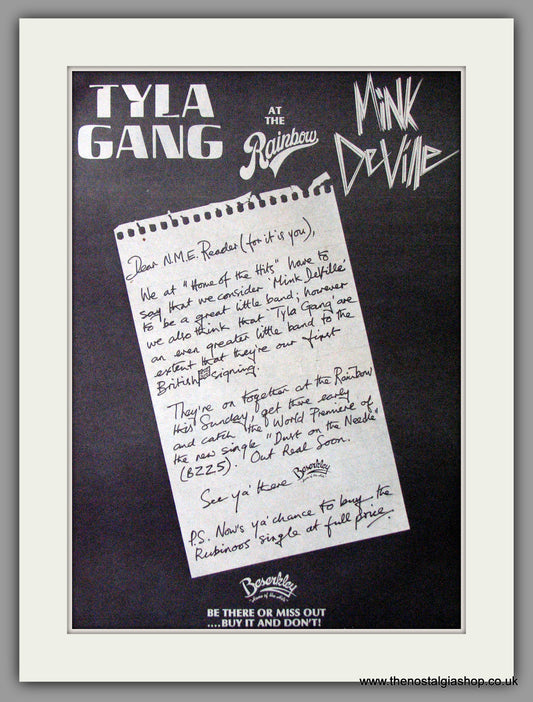 TYLA
GANG
AT
THE
Rainbow
MiNK
DeVille
Dear N.M.E. Reader (for it is you),
We at "Home of the Hits" have to
say that we consider 'Mink DeVille'
to be a great little band; however
we also think that 'Tyla Gang' are
an even greater little band to the
extent that they're our first
British signing.
They're on together at the Rainbow
this Sunday, get there early
and catch the World Premiere of
the new single "Dust on the Needle"
(BZZ5). Out Real Soon.
See ya' there Beserkley
P.S. Now's ya' chance to buy the
Rubinoos' single at full price.
Beserkley
"Home of the Hits"
BE THERE OR MISS OUT
....BUY IT AND DON'T!
www.thenostalgiashop.co.uk